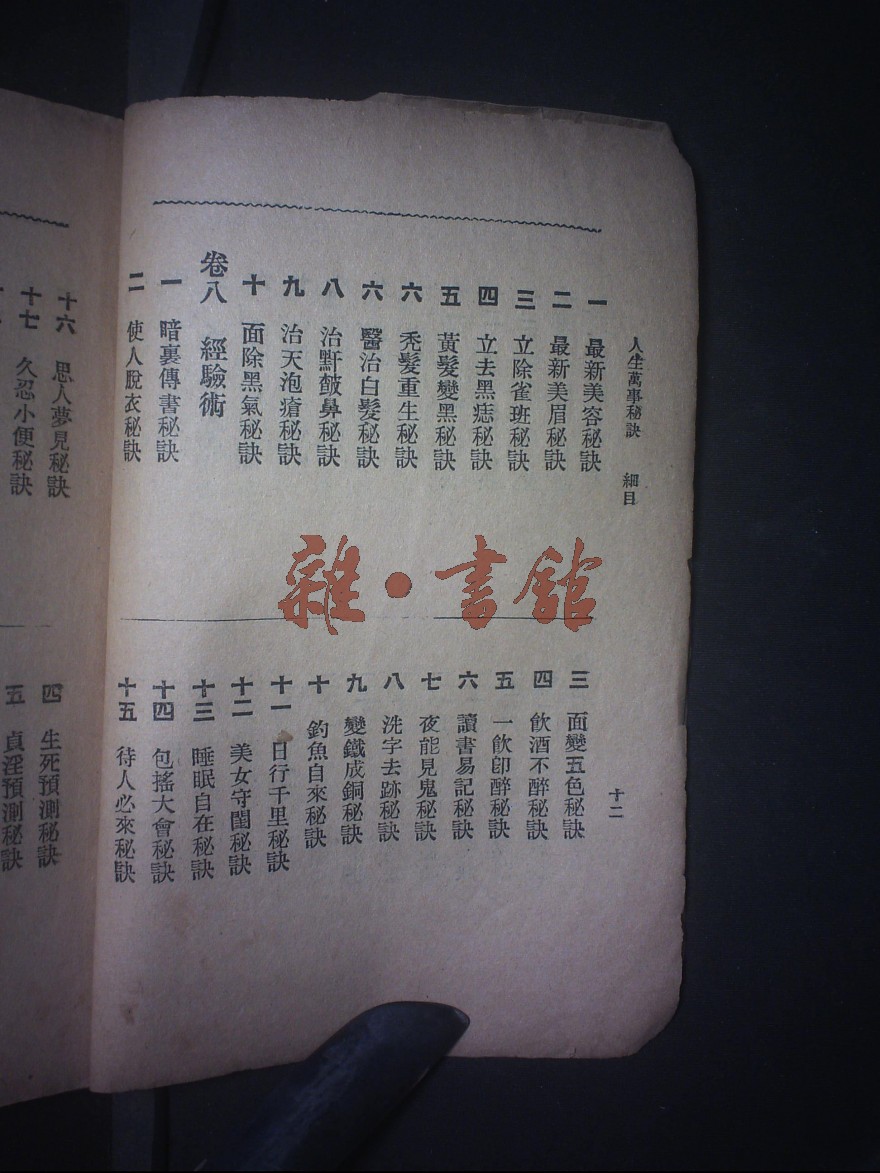 人生萬事秘訣 細目 十二
一 最新美容秘訣
二 最新美眉秘訣
三 立除雀班秘訣
四 立去黑痣秘訣
五 黃髮變黑秘訣
六 禿髮重生秘訣
六 醫治白髮秘訣
八 治䵟皶鼻秘訣
九 治天泡瘡秘訣
十 面除黑氣秘訣
卷八 經驗術
一 暗裏傳書秘訣
二 使人脫衣秘訣
三 面變五色秘訣
四 飲酒不醉秘訣
五 一飲卽醉秘訣
六 讀書易記秘訣
七 夜能見鬼秘訣
八 洗字去跡秘訣
九 變鐵成銅秘訣
十 釣魚自來秘訣
十一 日行千里秘訣
十二 美女守閨秘訣
十三 睡眠自在秘訣
十四 包搖大會秘訣
十五 待人必來秘訣
十六 思人夢見秘訣
十七 久忍小便秘訣
四 生死預測秘訣
五 貞淫預測秘訣
雜·書館